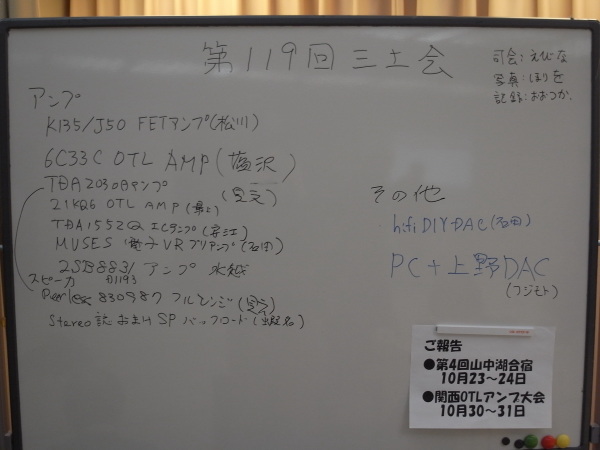 第119回三土会
司会:えびな
写真:ほりを
記録:おおつか
アンプ
K135/J50 FETアンプ(松川)
6C33C OTL AMP(塩沢)
TDA2030Aアンプ
21KQ6 OTL AMP(最上)
TDA1552Q ICアンプ
MUSES 電子VRプリアンプ(石田)
2SB883/ アンプ 水越
D1193
スピーカ
Peerless 830987 フルレンジ
Stereo誌おまけSP バックロード(
その他
hifiDIY-DAC(石田)
PC+上野DAC
(フジモト)
ご報告
●第4回山中湖合宿
10月23~24日
●関西OTLアンプ大会
10月30~31日